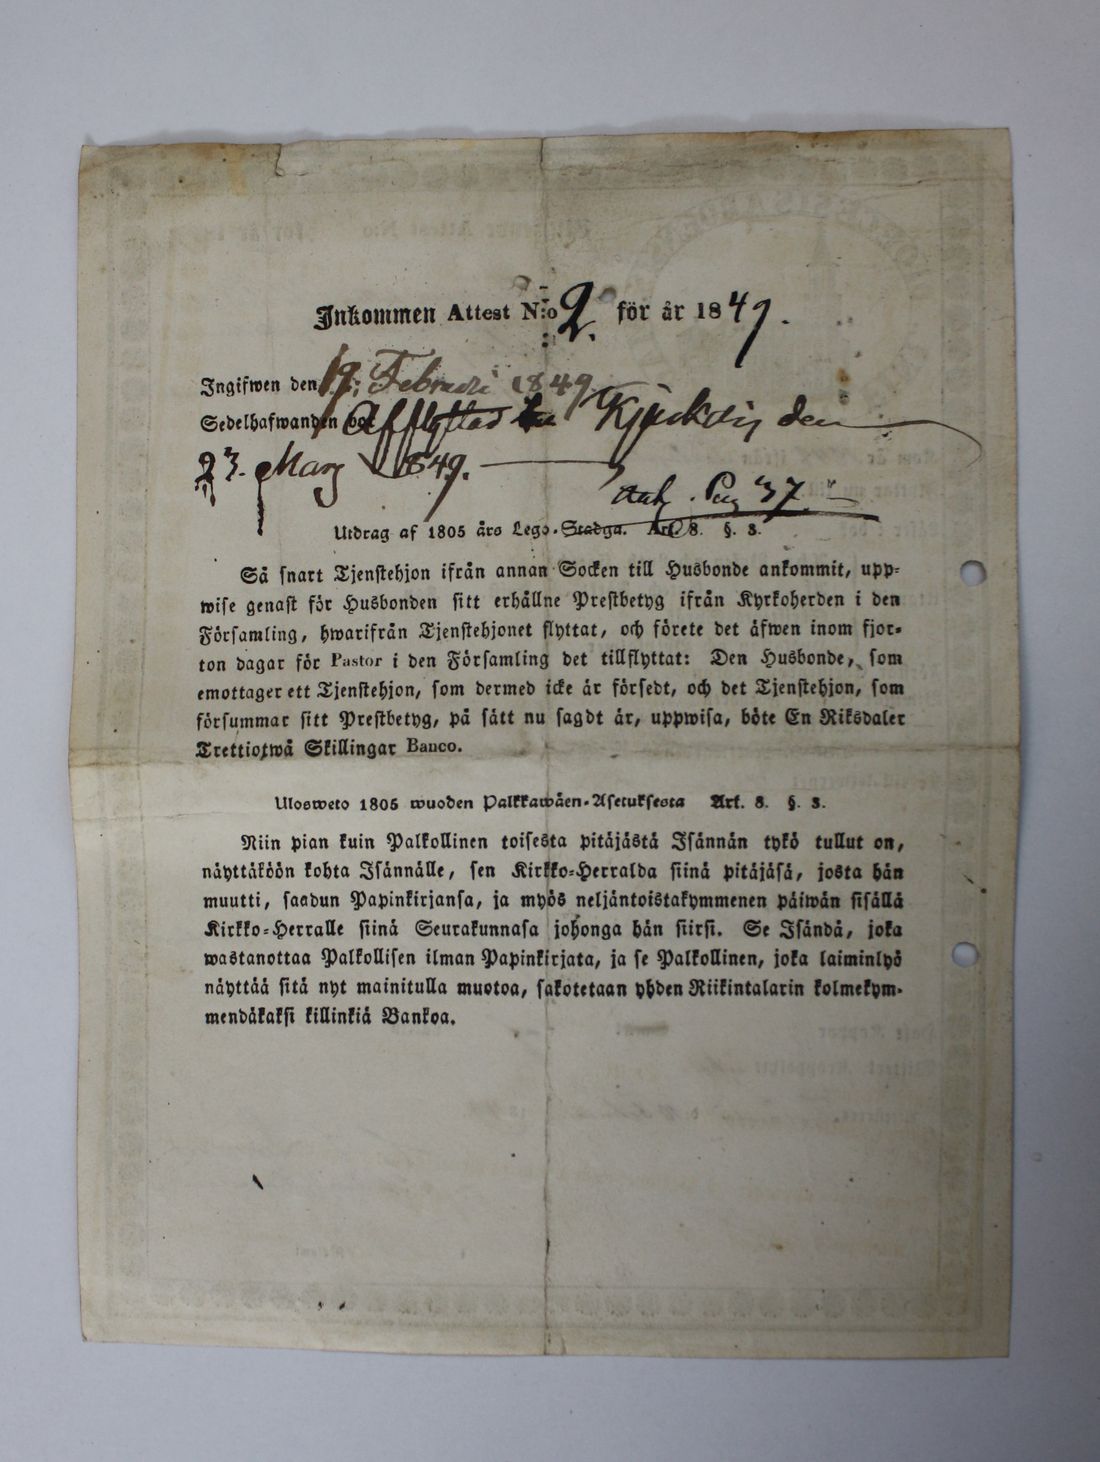 Inkommen Attest N:o 2. för år 1849.
Ingifwen den 19 Februari 1849
Sedelhafwanden Afflyttad Kjuloly den
23. Mars 1849.
Pag 37.
Utdrag af 1805 års Lego-Stadga. Art. 8. §. 3.
Så snart Tjenstehjon ifrån annan Socken till Husbonde ankommit, upp-
wise genast för Husbonden sitt erhållne Prestbetyg ifrån Kyrkoherden i den
Församling, hwarifrån Tjenstehjonet flyttat, och förete det äfwen inom fjor-
ton dagar för Pastor i den Församling det tillflyttat: Den Husbonde, som
emottager ett Tjenstehjon, som dermed icke är försedt, och det Tjenstehjon, som
försummar sitt Prestbetyg, på sätt nu sagdt är, uppwisa, böte En Riksdaler
Trettiotwå Skillingar Banco.
Ulosweto 1805 wuoden Palkkawäen-Asetuksesta Art. 8. §. 3.
Niin pian kuin Palkollinen toisesta pitäjästä Isännän tykö tullut on,
näyttäköön kohta Isännälle, sen Kirkko-Herralda siinä pitäjäsä, josta hän
muutti, saadun Papinkirjansa, ja myös neljäntoistakymmenen päiwän sisällä
Kirkko-Herralle siinä Seurakunnasa johonga hän siirsi. Se Isändä, joka
wastanottaa Palkollisen ilman Papinkirjata, ja se Palkollinen, joka laiminlyö
näyttää sitä nyt mainitulla muotoa, sakotetaan yhden Riikintalarin kolmekym-
mendäkaksi killinkiä Bankoa.